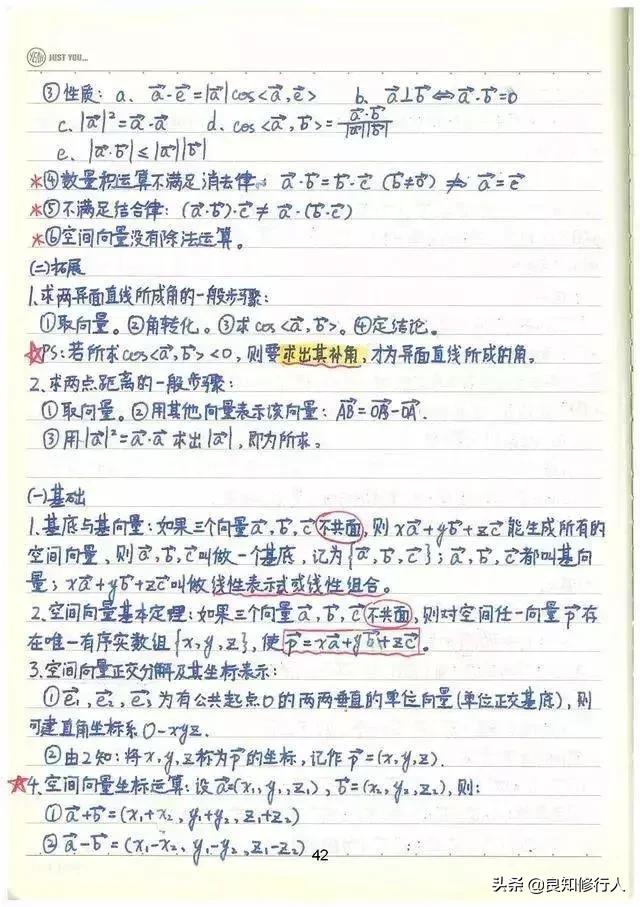 YEAH JUST YOU...
③性质：a、a⃗·e⃗=|a⃗|cos<a⃗,e⃗> b、a⃗⊥b⃗⇔a⃗·b⃗=0
c、|a⃗|²=a⃗·a⃗ d、cos<a⃗,b⃗>=a⃗·b⃗/|a⃗||b⃗|
e、|a⃗·b⃗|≤|a⃗||b⃗|
*④数量积运算不满足消去律。a⃗·b⃗=b⃗·c⃗ (b⃗≠0⃗) ⇏ a⃗=c⃗
*⑤不满足结合律：(a⃗·b⃗)·c⃗≠a⃗·(b⃗·c⃗)
*⑥空间向量没有除法运算。
(二)拓展
1.求两异面直线所成角的一般步骤：
①取向量。②角转化。③求cos<a⃗,b⃗>。④定结论。
☆PS：若所求cos<a⃗,b⃗><0，则要求出其补角，才为异面直线所成的角。
2.求两点距离的一般步骤：
①取向量。②用其他向量表示该向量：AB⃗=OB⃗-OA⃗.
③用|a⃗|²=a⃗·a⃗求出|a⃗|，即为所求。
(一)基础
1.基底与基向量：如果三个向量a⃗,b⃗,c⃗不共面，则xa⃗+yb⃗+zc⃗能生成所有的
空间向量，则a⃗,b⃗,c⃗叫做一个基底，记为{a⃗,b⃗,c⃗}；a⃗,b⃗,c⃗都叫基向
量；xa⃗+yb⃗+zc⃗叫做线性表示式或线性组合。
2.空间向量基本定理：如果三个向量a⃗,b⃗,c⃗不共面，则对空间任一向量p⃗存
在唯一有序实数组{x,y,z}，使p⃗=xa⃗+yb⃗+zc⃗。
3.空间向量正交分解及其坐标表示：
①e⃗₁,e⃗₂,e⃗₃为有公共起点O的两两垂直的单位向量(单位正交基底)，则
可建直角坐标系O-xyz.
②由2知：将x,y,z称为p⃗的坐标，记作p⃗=(x,y,z).
☆4.空间向量坐标运算：设a⃗=(x₁,y₁,z₁)，b⃗=(x₂,y₂,z₂)，则：
①a⃗+b⃗=(x₁+x₂、y₁+y₂,z₁+z₂)
②a⃗-b⃗=(x₁-x₂、y₁-y₂,z₁-z₂)
42
头条@良知修行人